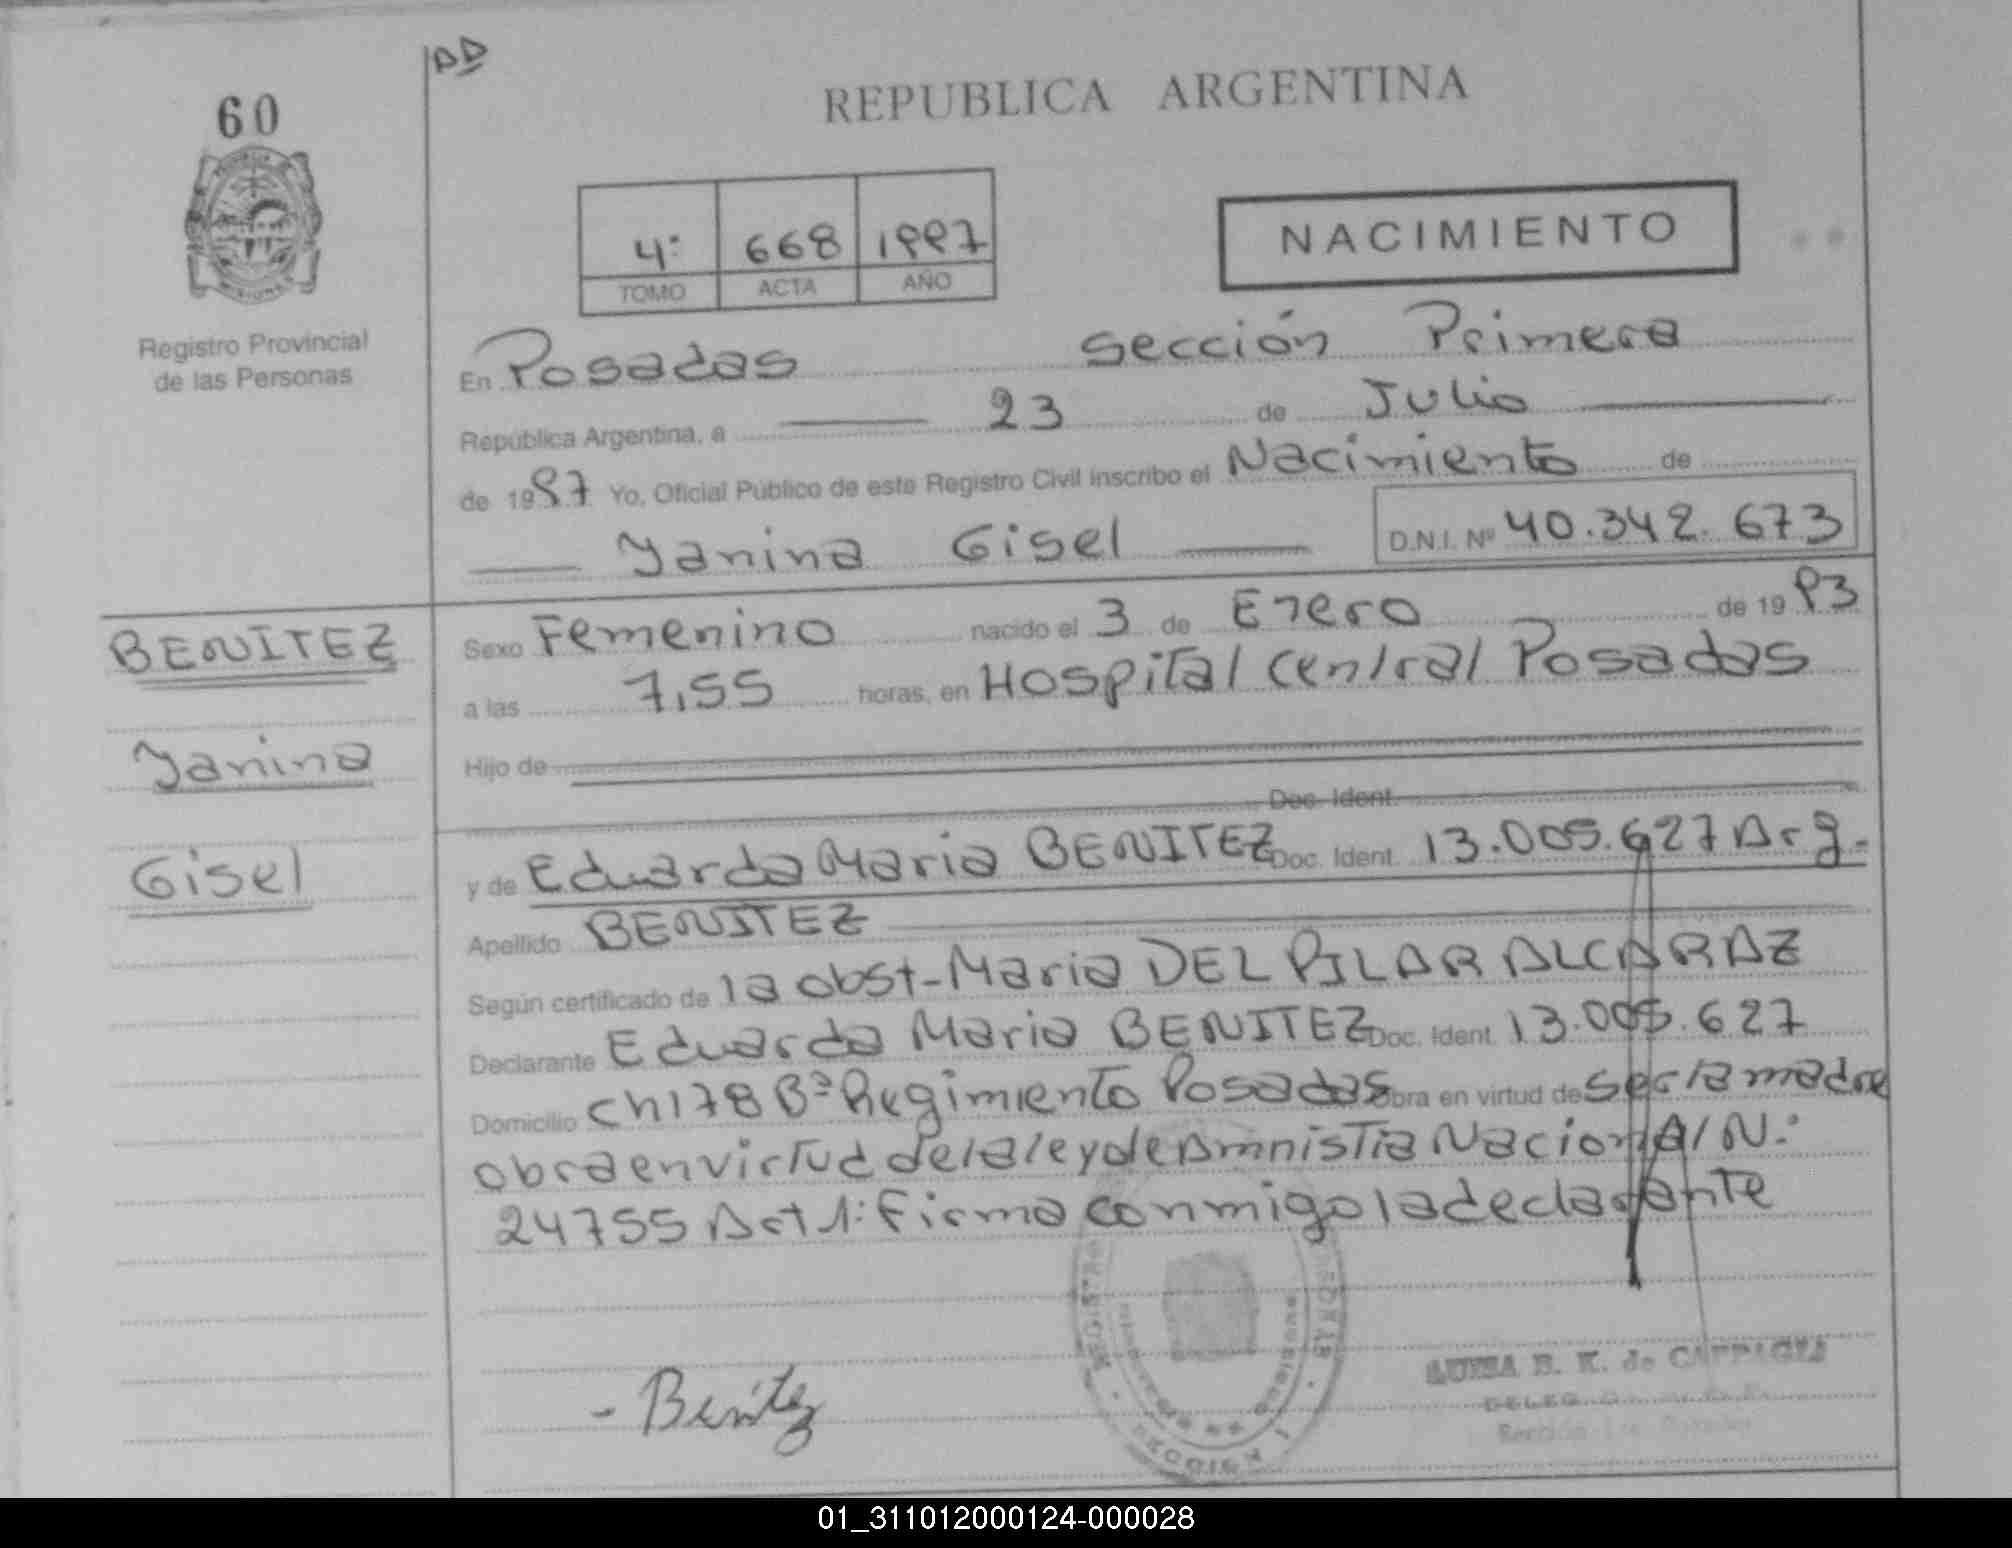 DD
60
REPUBLICA ARGENTINA
4: 668 1997
TOMO ACTA AÑO
NACIMIENTO
MISIONES
Registro Provincial
de las Personas
En Posadas Sección Primera
República Argentina, a 23 de Julio
de 1997 Yo, Oficial Público de este Registro Civil inscribo el Nacimiento de
Yanina Gisel D.N.I. Nº 40.342.673
BENITEZ
Yanina
Gisel
Sexo Femenino nacido el 3 de Enero de 1993
a las 7,55 horas, en Hospital Central Posadas
Hijo de
Doc. Ident.
y de Eduarda Maria BENITEZ Doc. Ident. 13.005.627 Arg.
Apellido BENITEZ
Según certificado de la obst-Maria DEL PILAR ALCARAZ
Declarante Eduarda Maria BENITEZ Doc. Ident. 13.005.627
Domicilio Ch178 Bº Regimiento Posadas obra en virtud de ser la madre
obra en virtud de la ley de Amnistia Nacional N.º
24755 Art 1: Firma conmigo la declarante
- Benítez
LUISA B. K. de
01_311012000124-000028